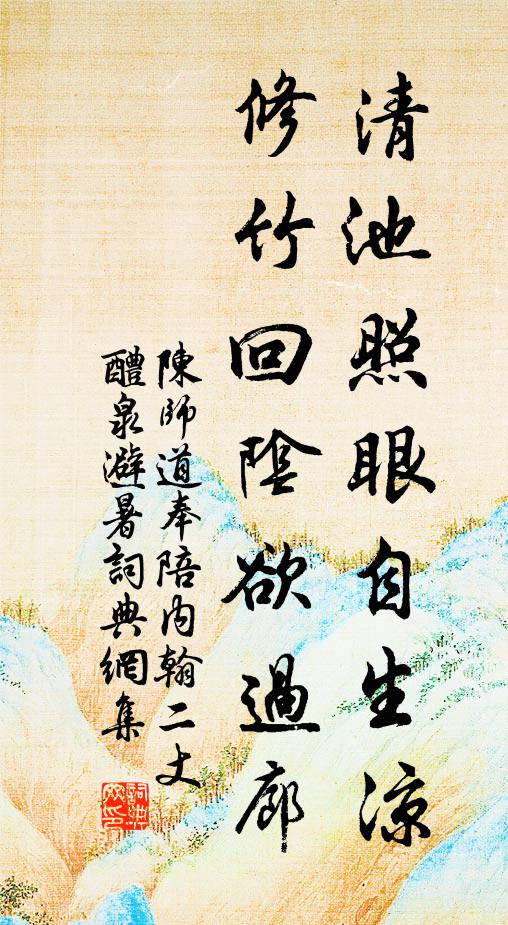 清池照眼自生涼
修竹回陰欲過廊
陳師道奉陪内翰二丈
醴泉避暑詞典網集